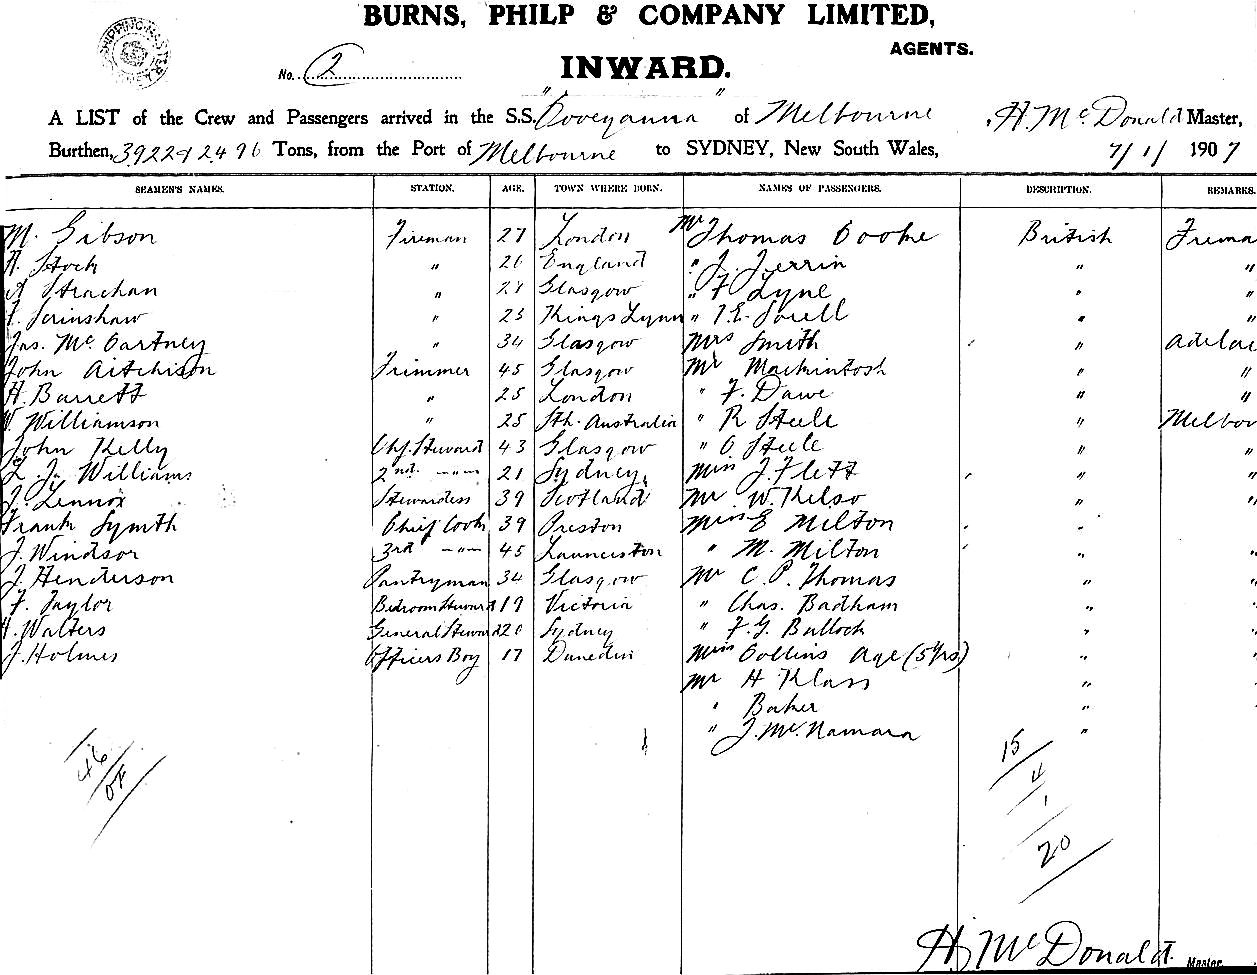 BURNS, PHILP & COMPANY LIMITED,
AGENTS.
No. 2
INWARD.
A LIST of the Crew and Passengers arrived in the S.S. "Cooeyanna" of Melbourne H. McDonald Master,
Burthen, 3922 & 2496 Tons, from the Port of Melbourne to SYDNEY, New South Wales, 7/1/ 1907
SEAMEN'S NAMES. STATION. AGE. TOWN WHERE BORN. NAMES OF PASSENGERS. DESCRIPTION. REMARKS.
M. Gibson Fireman 27 London Mr Thomas Cooke British Frema
Stock " 26 England " J. Jerrin " "
A Strachan " 28 Glasgow " F Lyne " "
Scrinshaw " 25 Kings Lynn " T.E. Sorell " "
Jas. McCartney " 34 Glasgow Mrs Smith " Adelai
John Aitchison Trimmer 45 Glasgow Mr Mackintosh " "
H. Barrett " 25 London " F. Dawe " "
W. Williamson " 25 Sth. Australia " R Steele " Melbou
John Kelly Chf. Steward 43 Glasgow " O. Steele " "
L. J. Williams 2nd -"- 21 Sydney. Miss J. Flett " "
J. Lennox Stewardess 39 Scotland Mr W. Kelso " "
Frank Symth Chief Cook 39 Preston Miss E Milton " "
J. Windsor 3rd -"- 45 Launceston " M. Milton " "
J. Henderson Pantryman 34 Glasgow Mr C. P. Thomas " "
F. Taylor Bedroom Steward 19 Victoria " Chas. Badham " "
Walters General Steward 20 Sydney " F. G. Bulloch " "
J. Holmes Officers Boy 17 Dunedin Miss Collins Age (5 yrs) " "
Mr H Klass " "
" Baker " "
" J. McNamara " "
46
15
4
1
20
H. McDonald. Master